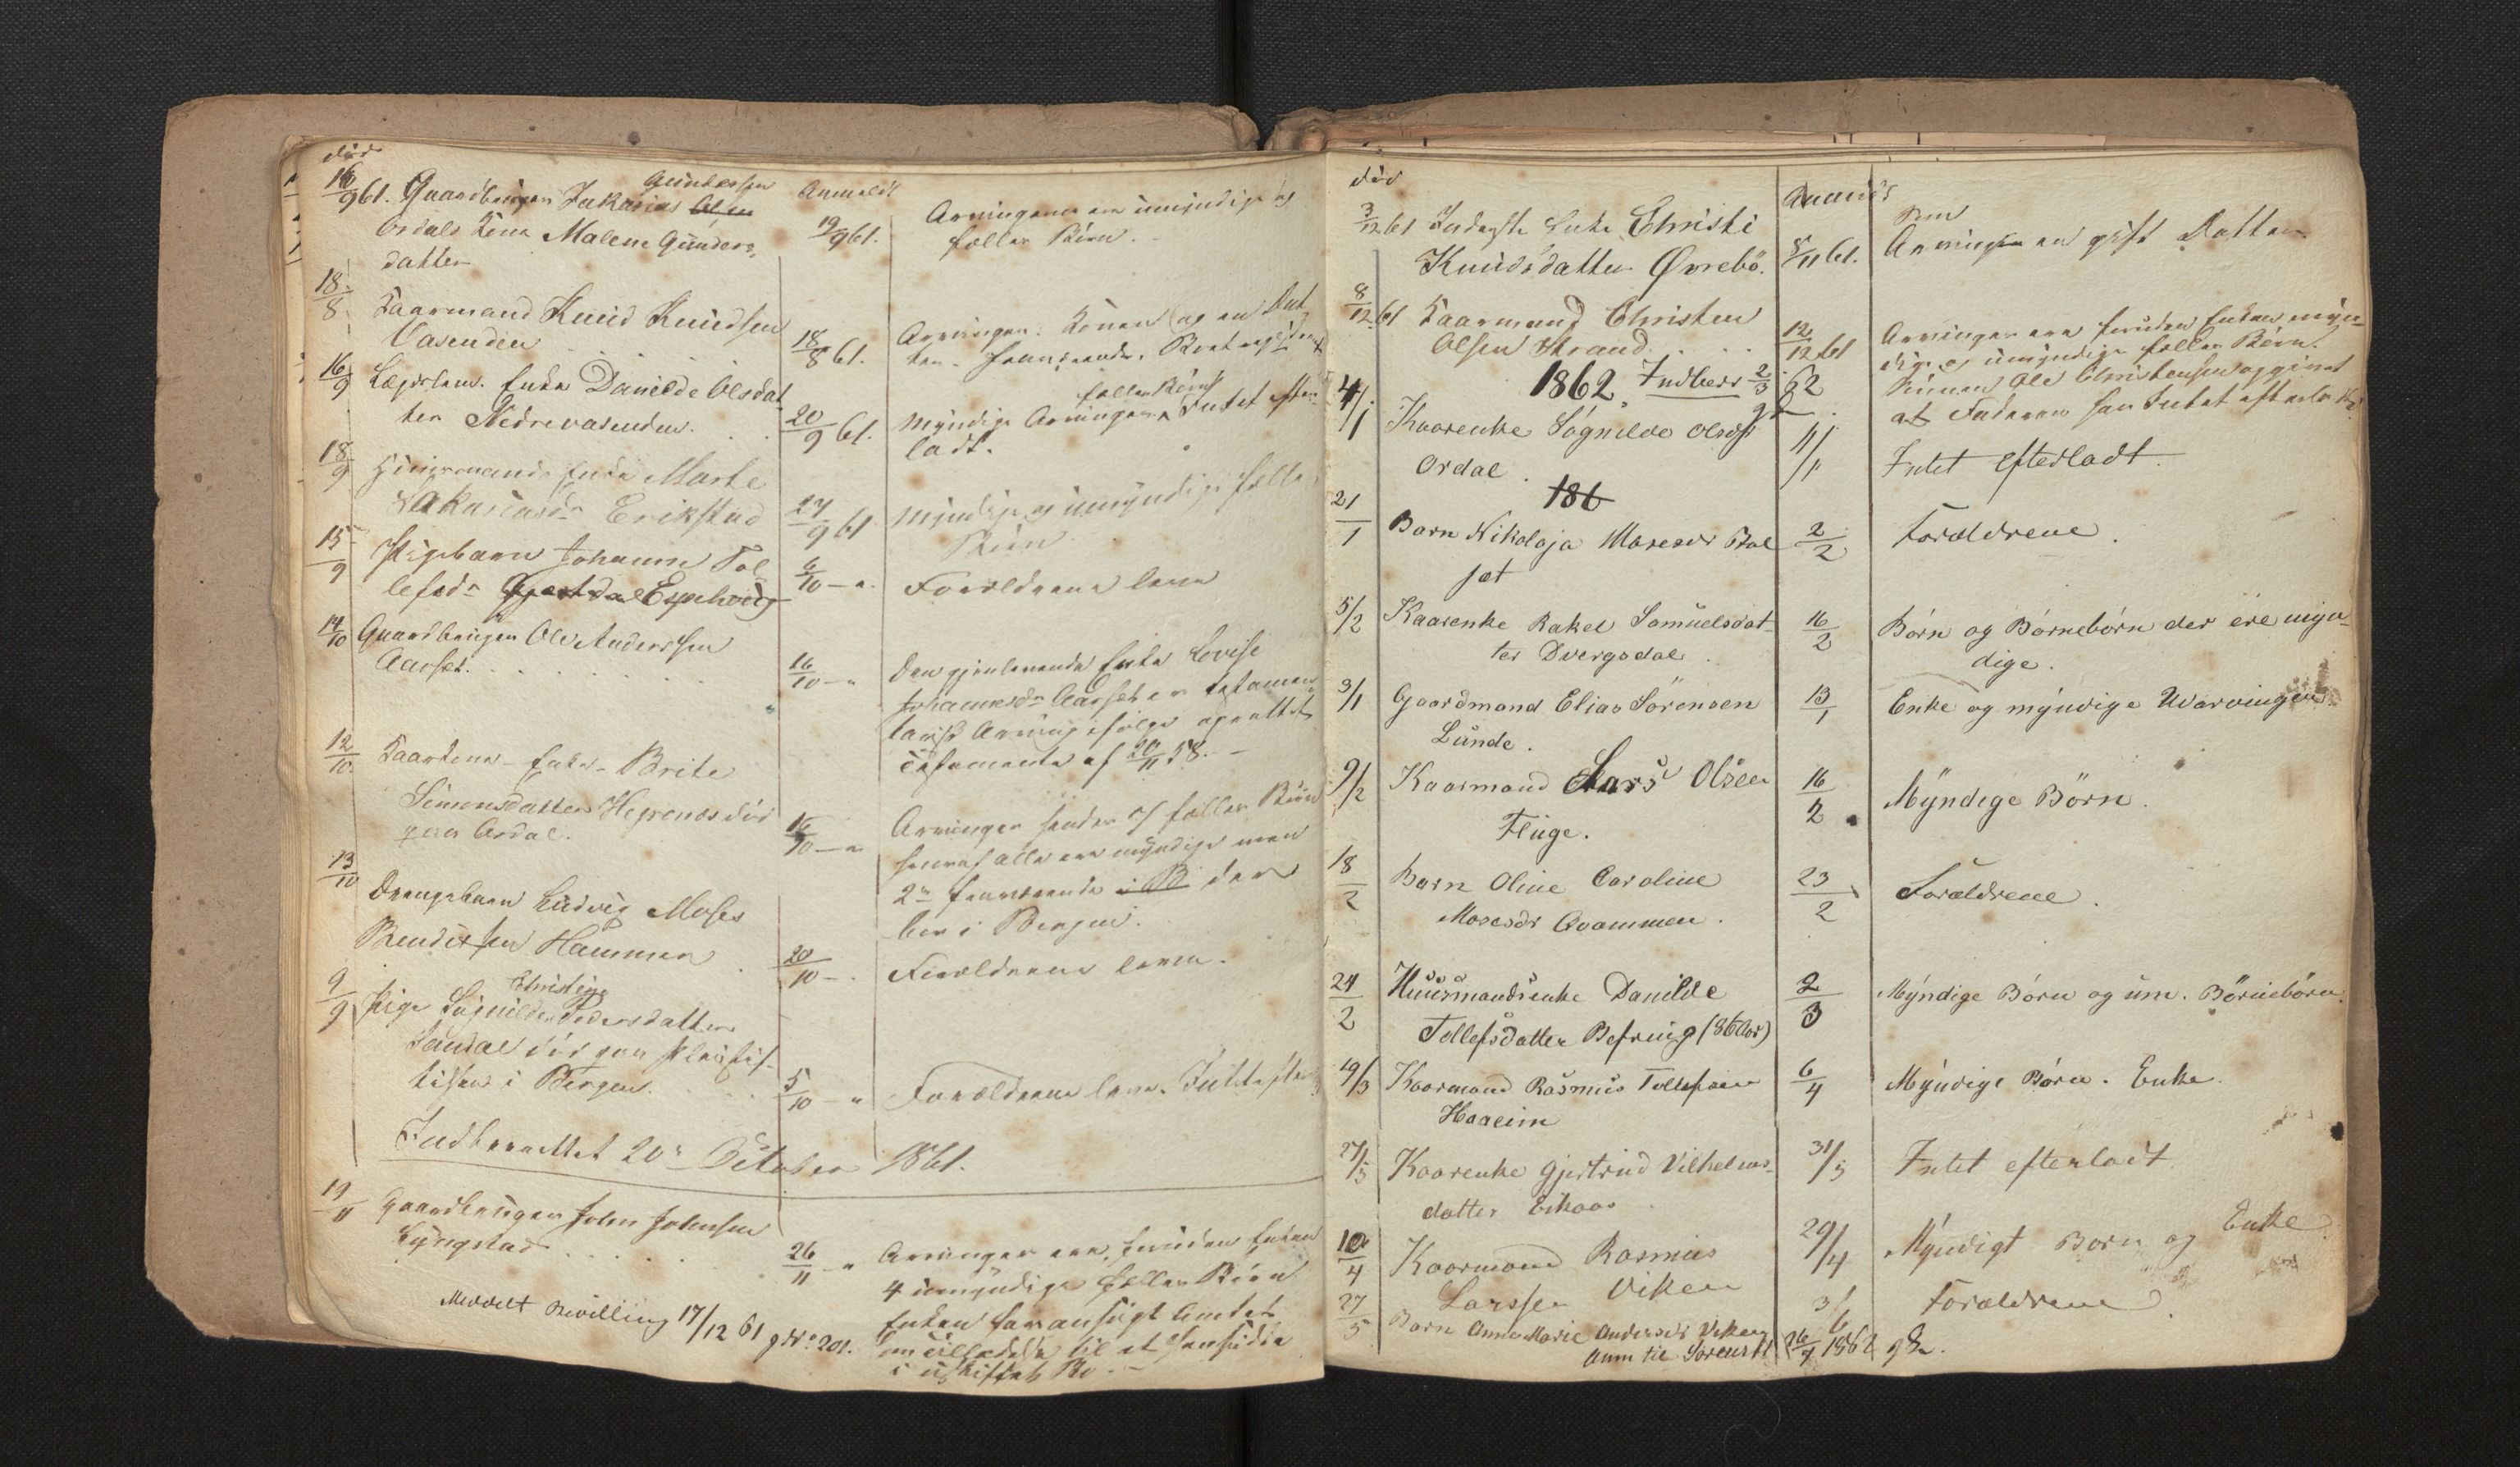 død
16/9 61. Gaardbruger Zakarias Olsen Gundersen
Ordals Kone Malene Gunders
datter
Anmeldt
19/9 61.
Arvingerne ere umyndige
fælles Børn.
18/8 Kaarmand Knud Knudsen
Vasenden
18/8 61.
Arvinger: Konen og en Dat
ter
16/9 Lægdslem. Enke Danilde Olsdat
ter Nedrevasenden.
20/9 61.
fælles Børn
Myndige Arvinger Intet efter
ladt.
18/9 Huusmands Enke Marte
Zakariasdr Erikstad
24/9 61
Myndige og umyndige fælles
Børn
15/9 Pigebarn Johanne Tol
lefsdr Espehoug
6/10 — "
Forældrene leve
14/10 Gaardbruger Ole Andersen
Aarset.
16/10 — "
Den gjenlevende Enke Lovise
Johannesdr Aarset er testamen
tarisk Arving ifølge oprettet
Testamente af 20/11 58. —
12/10 Kaarkone – Enke – Brite
Simonsdatter Hegrenes død
paa Ordal.
16/10 — "
Arvinger hendes 7 fælles Børn
hvoraf alle ere myndige men
2de fraværende i B der
bor i Bergen.
13/10 Drengebarn Ludvig Moses
Bendixsen Hammer
20/10 — .
Forældrene leve.
9/9 Pige Sögnilde Christine Pedersdatter
Sandal død paa Pleiestif
telsen i Bergen.
5/10 — "
Forældrene leve. Intet efter
Indberettet 20de October 1861.
19/11 Gaardbruger John Johnsen
Lyngstad
26/11 — "
Arvinger ere, foruden Enken
4 umyndige fælles Børn
Enken har ansøgt Amtet
om Tilladelse til at hensidde
i uskiftet Bo —
Meddelt Bevilling 17/12 61 No 201.
død
Anmeldt
3/12 61 Inderste Enke Christi
Knudsdatter Øvrebö.
8/11 61.
Arving en gift Datter.
8/12 61 Kaarmand Christen
Olsen Strand
12/12 61
Arvinger ere foruden Enken myn
dige og umyndige fælles Børn.
Sönnen Ole Christensen opgivet
at Faderen har Intet efterladt
1862. Indber 2/3 62
4/1 Kaarenke Sögnilde Olsdtr
Ordal.
11/1
Intet efterladt.
186
21/1 Barn Nikolaja Mosesdr Bol
set
2/2
Forældrene.
5/2 Kaarenke Rakel Samuelsdat
ter Dvergsdal.
16/2
Börn og Börnebörn der ere myn
dige.
3/1 Gaardmand Elias Sörensen
Lunde.
13/1
Enke og myndige Udarvinger
9/2 Kaarmand Lars Olsen
Fluge.
16/2
Myndige Börn.
18/2 Barn Oline Caroline
Mosesdr Qvammen.
23/2
Forældrene.
24/2 Huusmandsenke Danilde
Tollefsdatter Befring (86 Aar)
2/3
Myndige Börn og um. Börnebörn.
19/3 Kaarmand Rasmus Tollefsen
Haaeim
6/4
Myndige Börn. Enke.
27/5 Kaarenke Gjertrud Vilhelms
datter Eikaas
31/5
Intet efterladt
10/4 Kaarmand Rasmus
Larssen Viken
29/4
Myndigt Barn og Enke
27/5 Barn Anne Marie Andersdr Viken
3/6
Forældrene.
Anm til Sorenskr 26/7 1862